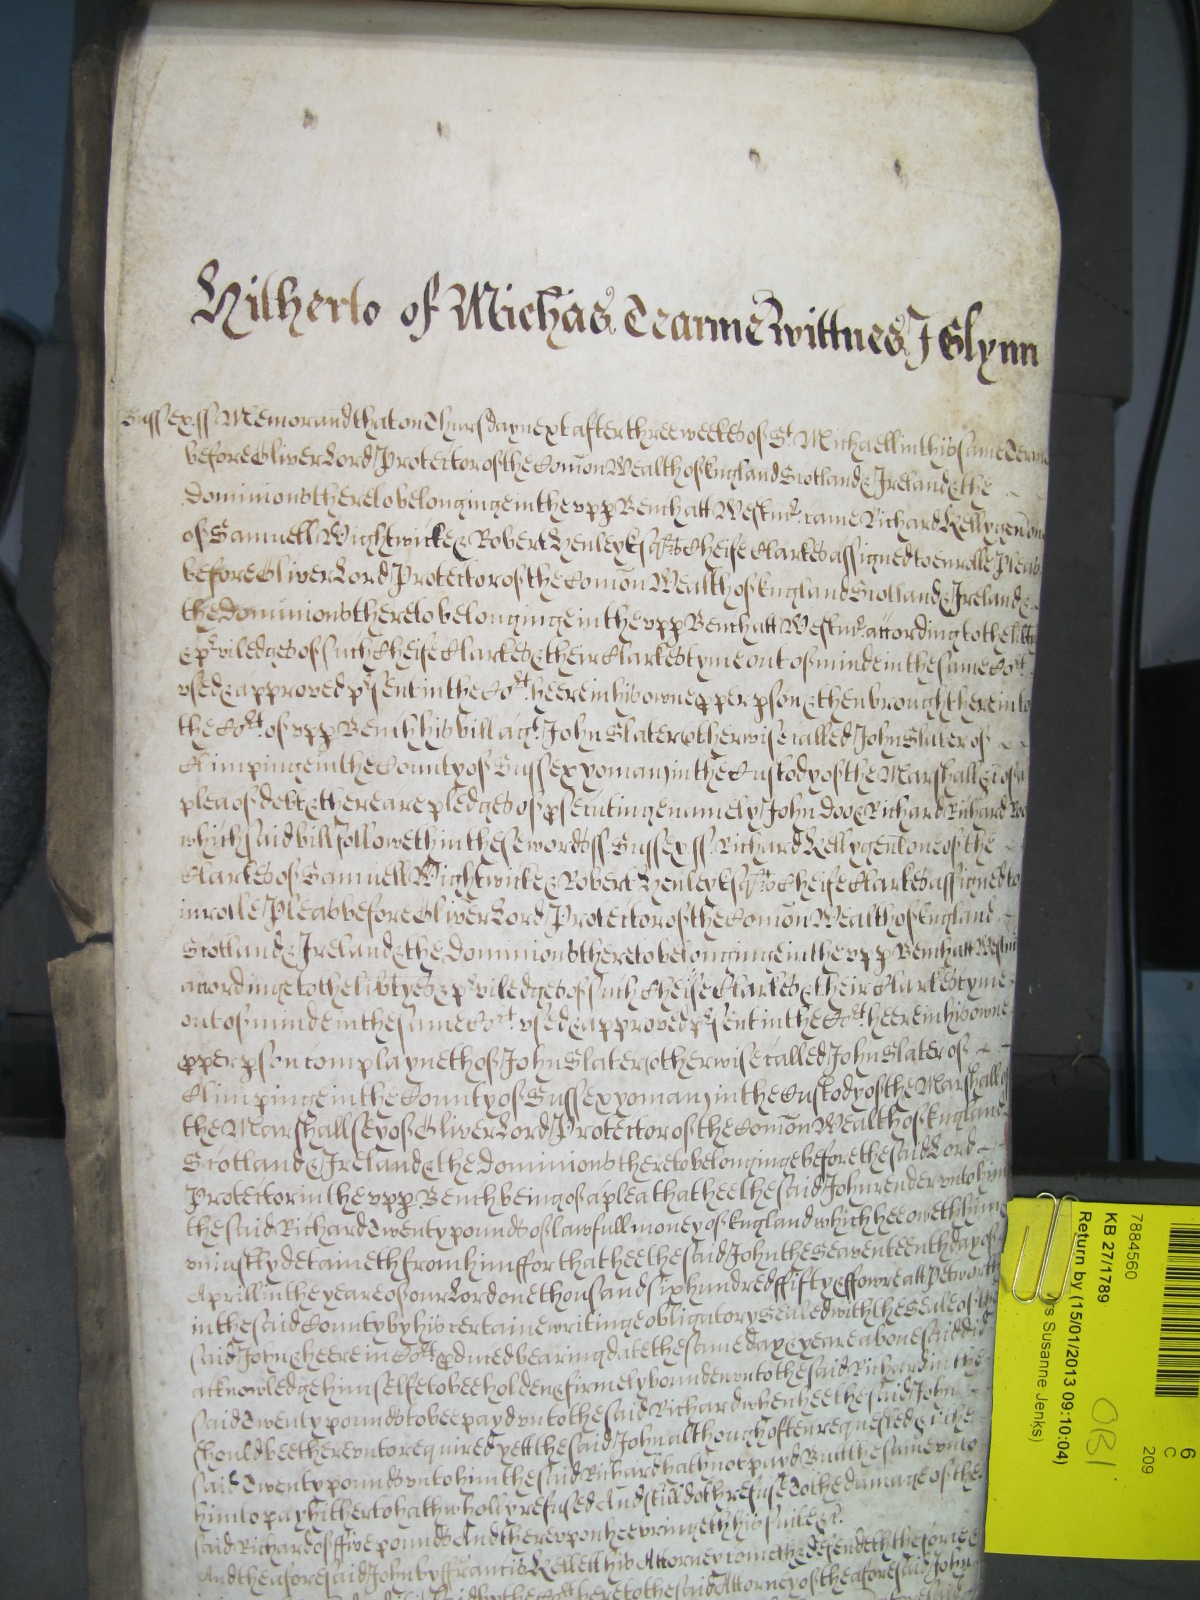 Hitherto of Michas Tearme wittnes J Glynn
Sussex ss Memorand that on Thursday next after three weekes of St. Michaell in this same Terme
before Oliver Lord Protector of the Comon Wealth of England Scotland & Ireland & the
Dominions thereto belonginge in the upp Bench att Westmr. came Richard Kelly gen one
of Samuell Wightwicke & Robert Henley Esqrs Cheife Clarkes assigned to enrolle Pleas
before Oliver Lord Protector of the Comon Wealth of England Scotland & Ireland &
the Dominions thereto belonginge in the upp Bench att Westmr. accordinge to the libtyes
& priviledges of such Cheife Clarkes & their Clarkes tyme out of minde in the same Cort.
used & approved prsent in the Cort. heere in his owne pper pson & then brought here into
the Cort. of upp Bench his bill agt. John Slater otherwise called John Slater of
Climpinge in the County of Sussex yoman) in the Custody of the Marshall &c of a
plea of debt & there are pledges of psecutinge namely John Doo & Richard Richard Roo
which said bill followeth in these words ss. Sussex ss. Richard Kelly gen one of the
Clarkes of Samuell Wightwicke & Robert Henley Esqrs Cheife Clarkes assigned to
inrolle Pleas before Oliver Lord Protector of the Comon Wealth of England
Scotland & Ireland & the Dominions thereto belonginge in the upp Bench att Westmr
accordinge to the libtyes & priviledges of such Cheife Clarkes & their Clarkes tyme
out of minde in the same Cort. used & approved prsent in the Cort. heere in his owne
pper pson complayneth of John Slater otherwise called John Slater of
Climpinge in the County of Sussex yoman) in the Custody of the Marshall of
the Marshallsey of Oliver Lord Protector of the Comon Wealth of England
Scotland & Ireland & the Dominions thereto belonginge before the said Lord
Protector in the upp Bench being of a plea that hee the said John render unto him
the said Richard Twenty pounds of lawfull money of England which hee oweth him &
uniustly detaineth from him ffor that hee the said John the Seaventeenth day of
Aprill in the yeare of our Lord one thousand six hundred ffifty & ffowre att Petworth
in the said County by his certaine writinge obligatory Sealed with the Seale of the
said John & heere in Cort pduced bearing date the same day & yeare above said did
acknowledge himselfe to bee holden & firmely bounden unto the said Richard in the
said Twenty pounds to bee payd unto the said Richard when hee the said John
should bee thereunto required yett the said John although often requested &c the
said Twenty pounds unto him the said Richard hath not payd But the same unto
him to pay hitherto hath wholly refused And still doth refuse To the damage of the
said Richard of ffive pounds And thereupon hee bringeth his suite &c.
And the aforesaid John by ffrancis Kellett his Attorney cometh & defendeth the force &
heretofore to the said Attorney of the aforesaid John
7884560
KB 27/1789
Return by (15/01/2013 09:10:04)
s Susanne Jenks)
OB1
6
C
209